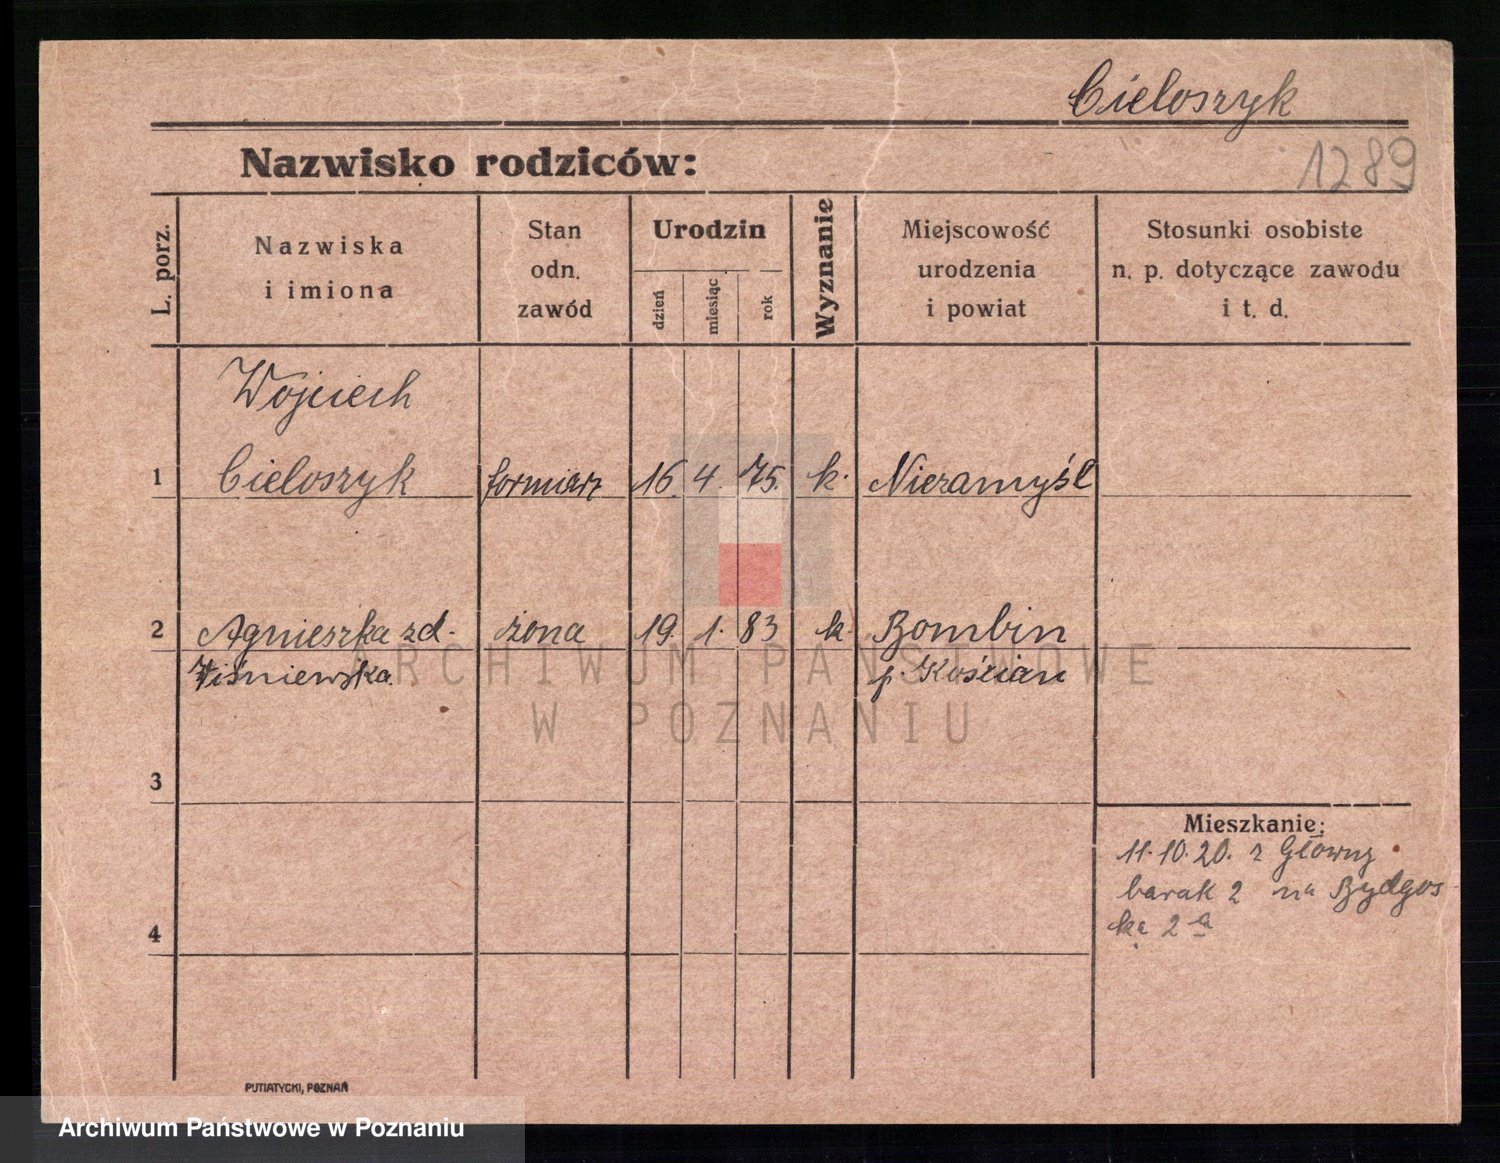 Cieloszyk
Nazwisko rodziców:
1289
L. porz.
Nazwiska
i imiona
Stan
odn.
zawód
Urodzin
dzień
miesiąc
rok
Wyznanie
Miejscowość
urodzenia
i powiat
Stosunki osobiste
n. p. dotyczące zawodu
i t. d.
Wojciech
1 Cieloszyk formierz 16. 4. 75. k. Niezamyśl
2 Agnieszka zd. żona 19. 1. 83 k. Bombin
Wiśniewska. p. Kościan
ARCHIWUM PAŃSTWOWE
W POZNANIU
3
Mieszkanie:
11.10.20. z Główny
barak 2 na Bydgos
ką 2a
4
PUTIATYCKI, POZNAŃ
Archiwum Państwowe w Poznaniu